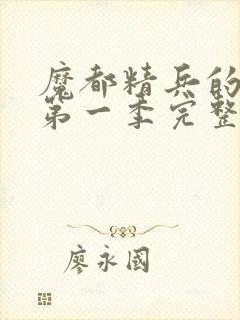 魔都精兵的
第一季完整
廖永國